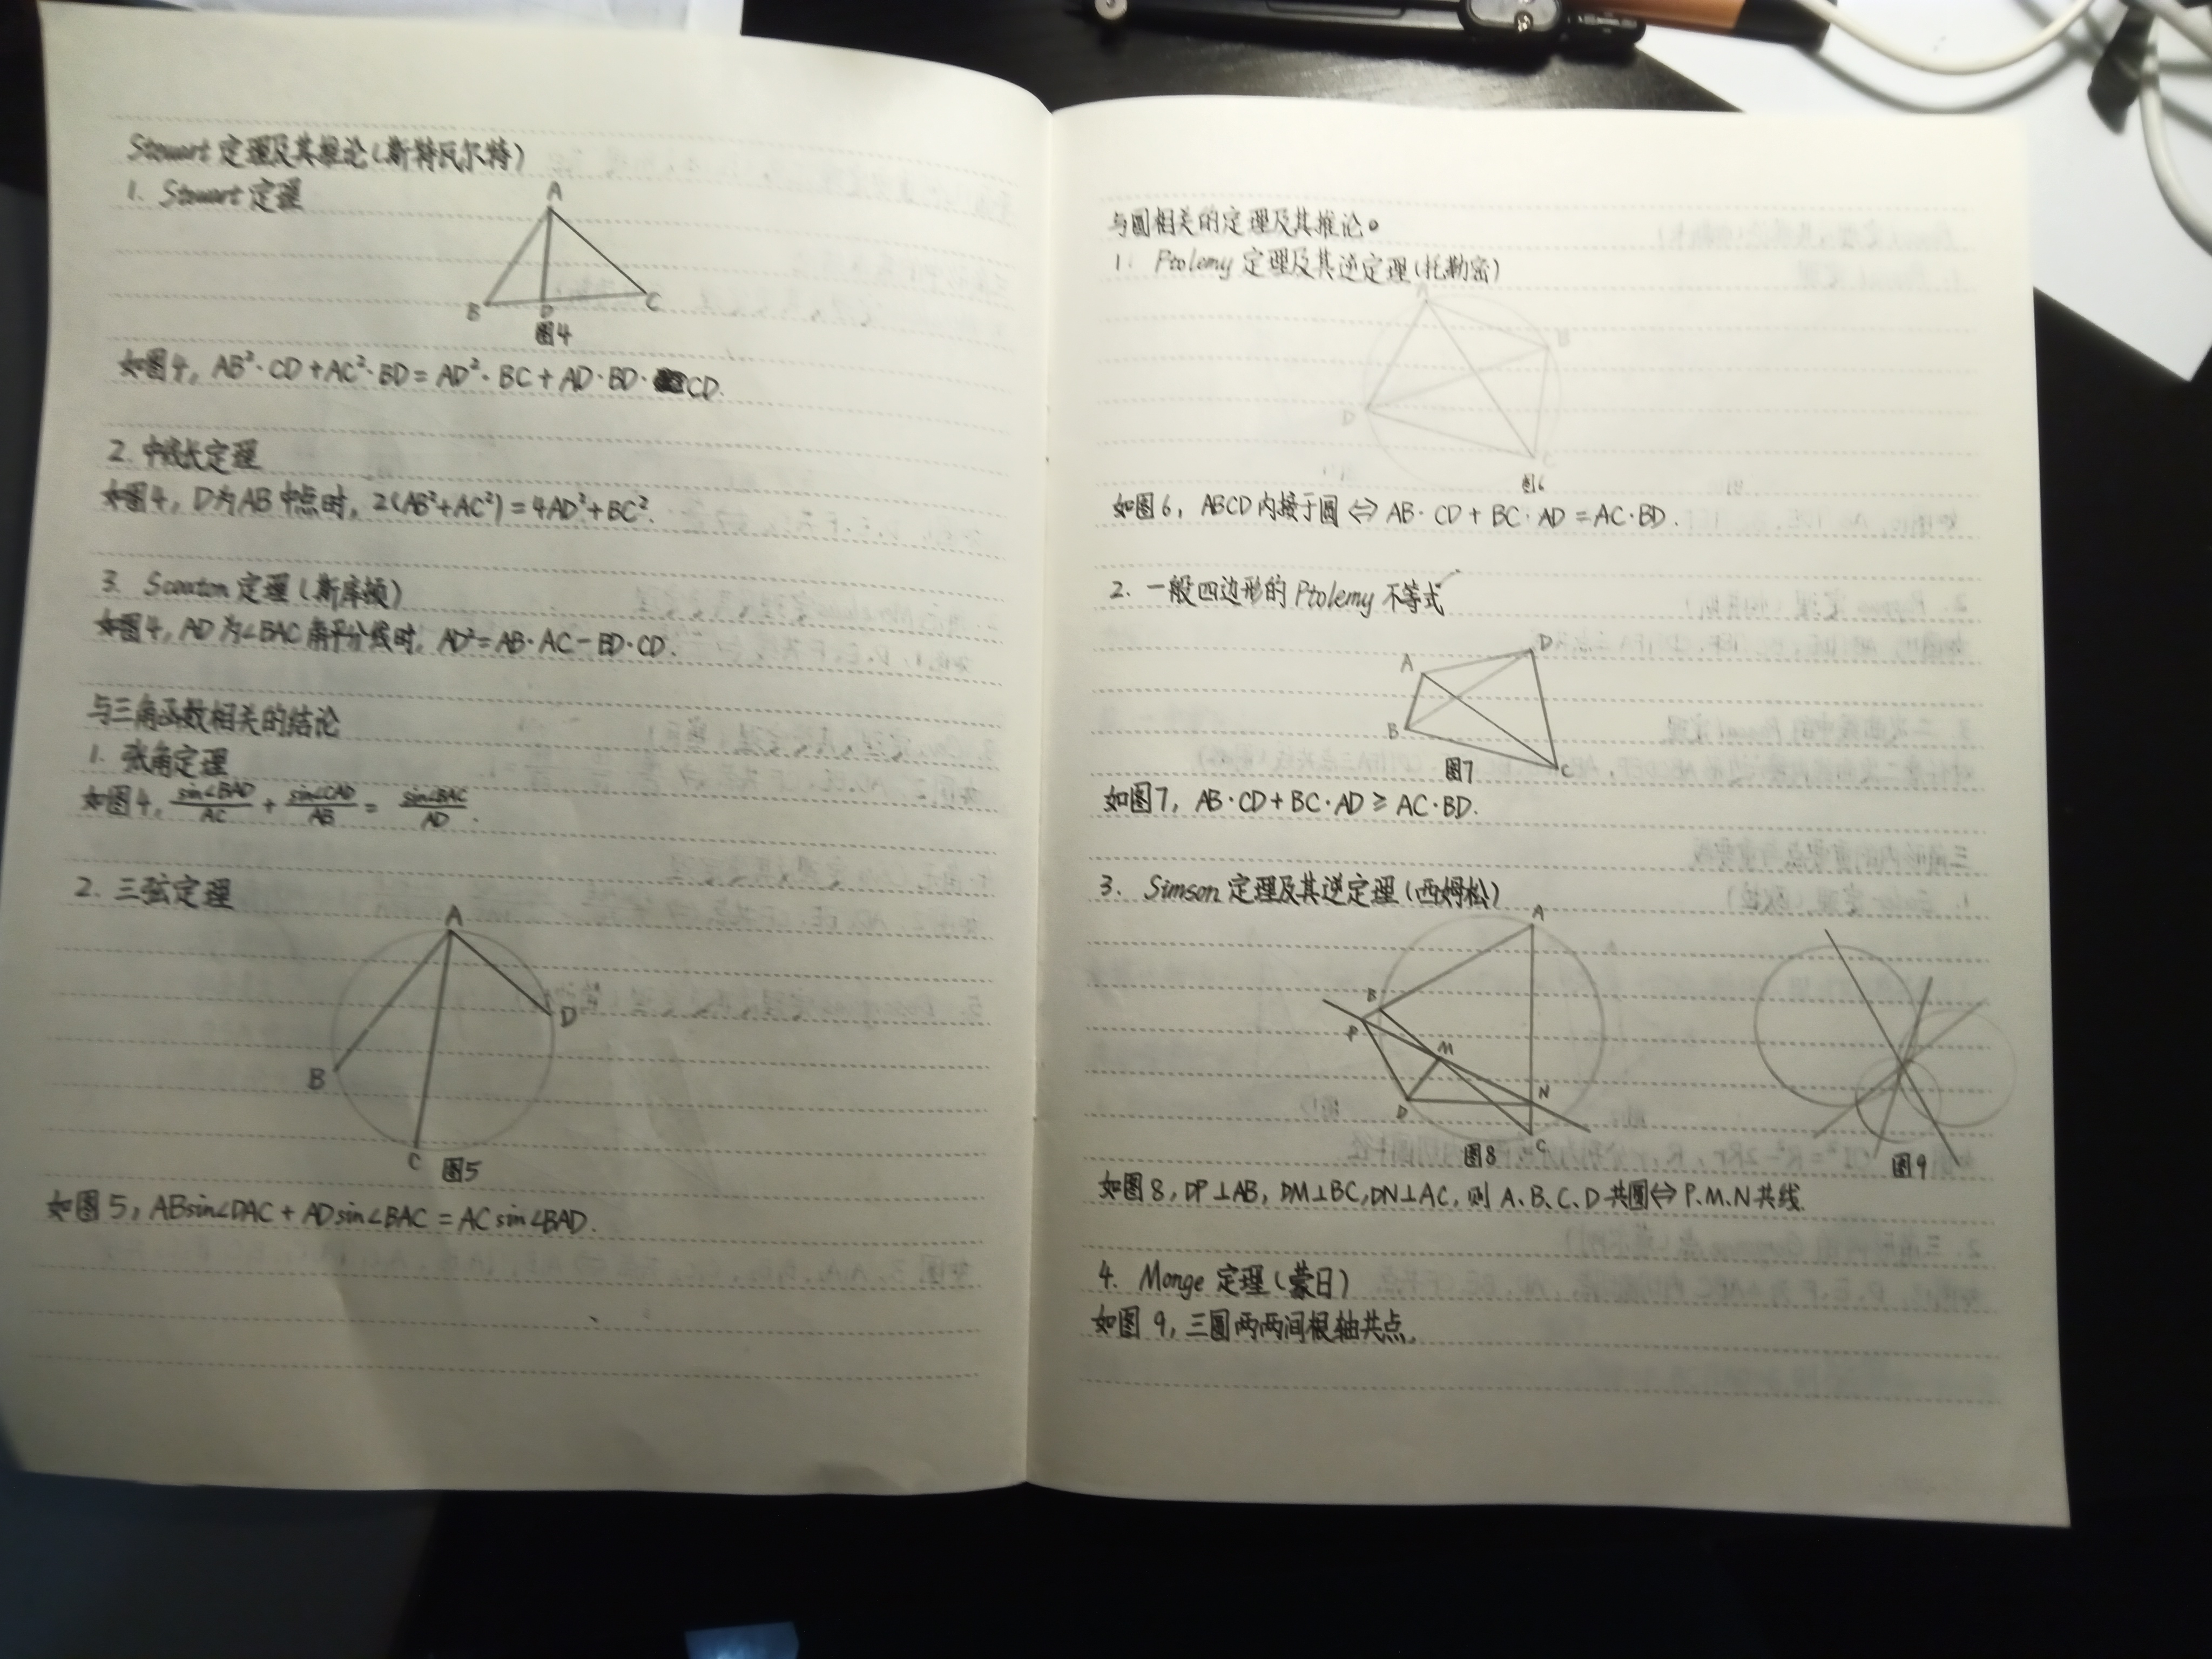 Stewart 定理及其推论(斯特瓦尔特)
1. Stewart 定理
A
B
D
C
图4
如图4, AB²·CD+AC²·BD=AD²·BC+AD·BD·CD.
2. 中线长定理
如图4, D为AB中点时, 2(AB²+AC²)=4AD²+BC².
3. Scouton 定理(斯库顿)
如图4, AD为∠BAC角平分线时, AD²=AB·AC-BD·CD.
与三角函数相关的结论
1. 张角定理
如图4, sin∠BAD/AC + sin∠CAD/AB = sin∠BAC/AD.
2. 三弦定理
A
D
B
C
图5
如图5, ABsin∠DAC + ADsin∠BAC = ACsin∠BAD.
与圆相关的定理及其推论。
1. Ptolemy 定理及其逆定理(托勒密)
A
B
D
C
图6
如图6, ABCD内接于圆⇔AB·CD+BC·AD=AC·BD.
2. 一般四边形的Ptolemy不等式
D
A
B
C
图7
如图7, AB·CD+BC·AD≥AC·BD.
3. Simson 定理及其逆定理(西姆松)
A
B
P
M
D
N
C
图8
图9
如图8, DP⊥AB, DM⊥BC, DN⊥AC, 则A、B、C、D共圆⇔P、M、N共线.
4. Monge 定理(蒙日)
如图9, 三圆两两间根轴共点.